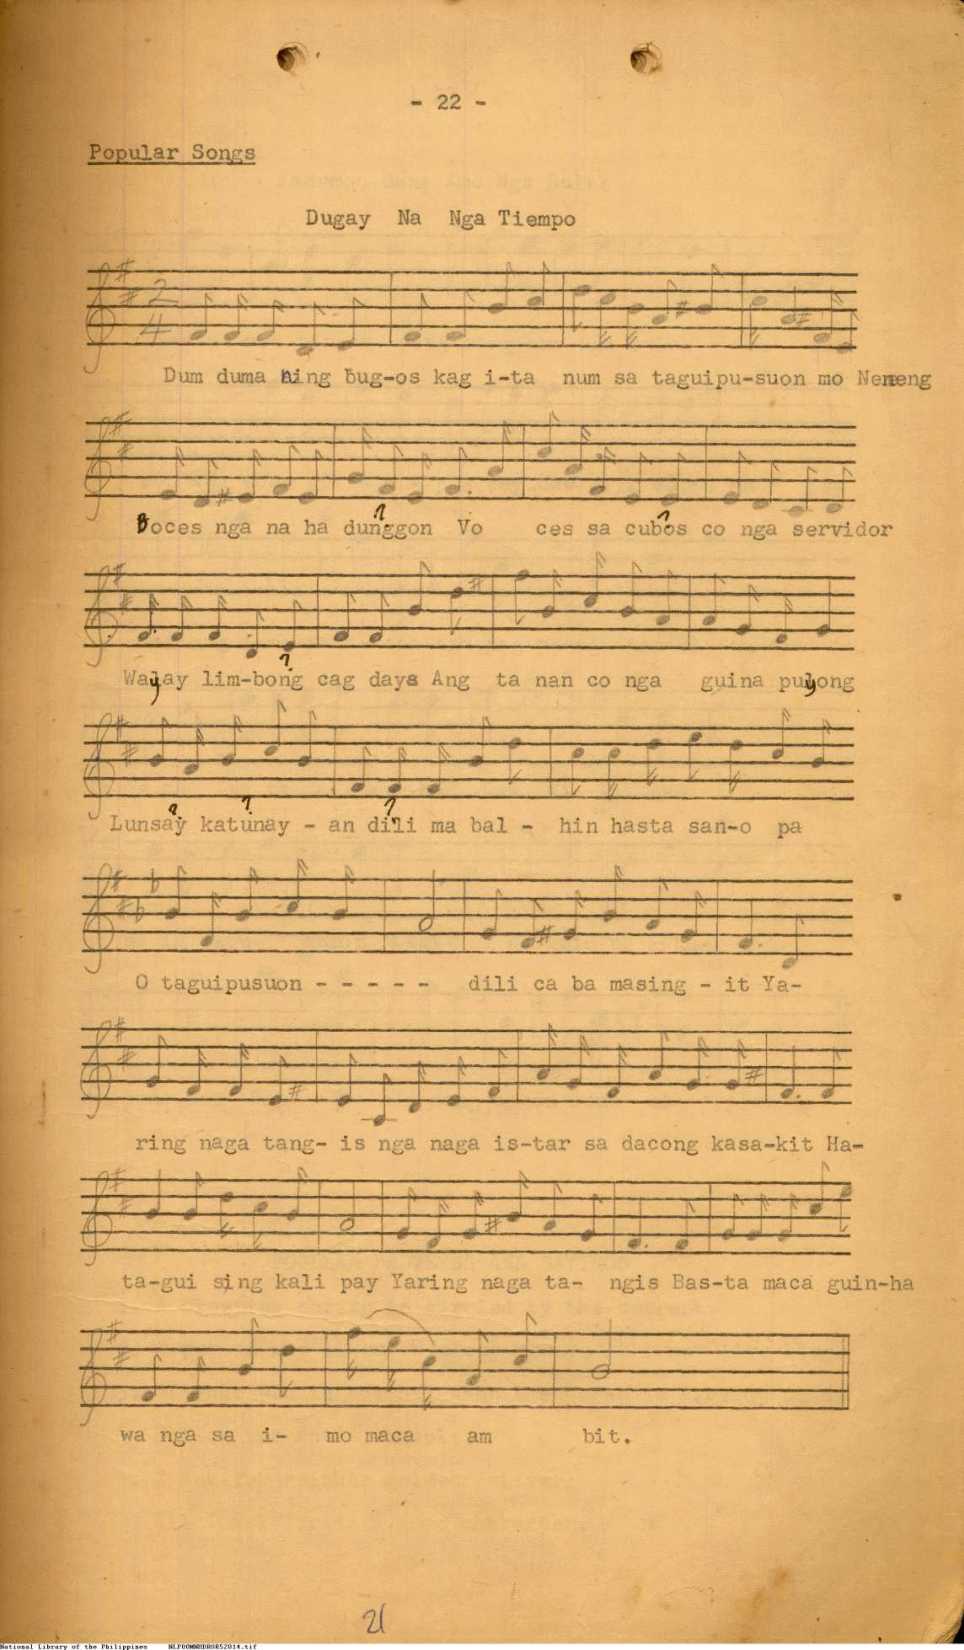 - 22 -
Popular Songs
Dugay Na Nga Tiempo
2
4
Dum duma hing bug-os kag i-ta num sa taguipu-suon mo Neneng
Boces nga na ha dunggon Vo ces sa cubos co nga servidor
Walay lim-bong cag daya Ang ta nan co nga guina puyong
Lunsay katunay - an dili ma bal - hin hasta san-o pa
O taguipusuon - - - - - dili ca ba masing - it Ya-
ring naga tang- is nga naga is-tar sa dacong kasa-kit Ha-
ta-gui sing kali pay Yaring naga ta- ngis Bas-ta maca guin-ha
wa nga sa i- mo maca am bit.
21
National Library of the Philippines